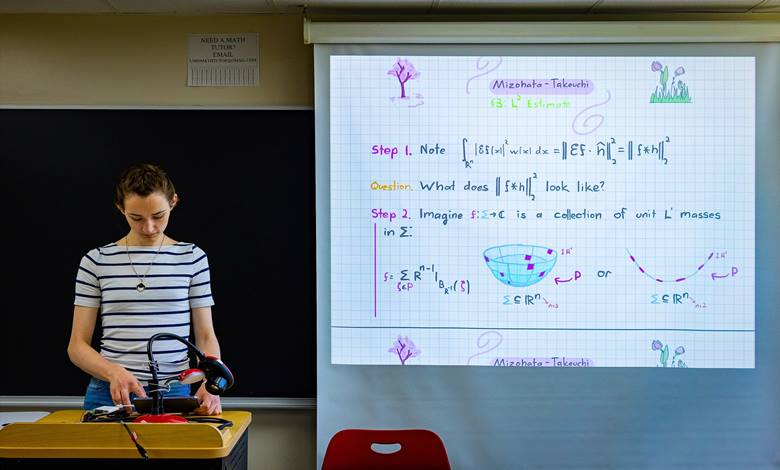 NEED A MATH
TUTOR?
EMAIL
Mizohata - Takeuchi
§3: L² Estimate
Step 1. Note ∫_{ℝⁿ} |Ef(x)|² w(x) dx = ‖Ef · ĥ‖₂² = ‖f*h‖₂²
Question. What does ‖f*h‖₂² look like?
Step 2. Imagine f: Σ→ℂ is a collection of unit L¹ masses
in Σ:
f = Σ_{ζ∈P} R^{n-1} 1_{B_{R⁻¹}(ζ)}
IR⁻¹
P
or
IR⁻¹
P
Σ ⊆ ℝⁿ n=3
Σ ⊆ ℝⁿ n=2
Mizohata - Takeuchi